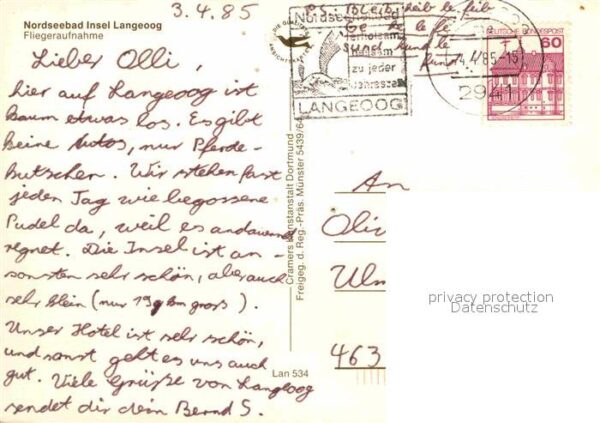 3.4.85
Nordseebad Insel Langeoog
Fliegeraufnahme
Lieber Olli,
hier auf Langeoog ist
kaum etwas los. Es gibt
keine Autos, nur Pferde-
kutschen. Wir stehen fast
jeden Tag wie begossene
Pudel da, weil es andauernd
regnet. Die Insel ist an-
sonsten sehr schön, aber auch
sehr klein (nur 19 qkm gross).
Unser Hotel ist sehr schön,
und sonst geht es uns auch
gut. Viele Grüße von Langeoog
sendet dir dein Bernd S.
P.S. Bleib
Ge
sund
Nordseeheilbad
heilsam
zu jeder
Jahreszeit
LANGEOOG
4.4.85-15
2941
DEUTSCHE BUNDESPOST
60
Cramers Kunstanstalt Dortmund
Freigeg. d. Reg.-Präs. Münster 5439/64
Lan 534
An
Oliv
Ulm
463
privacy protection
Datenschutz